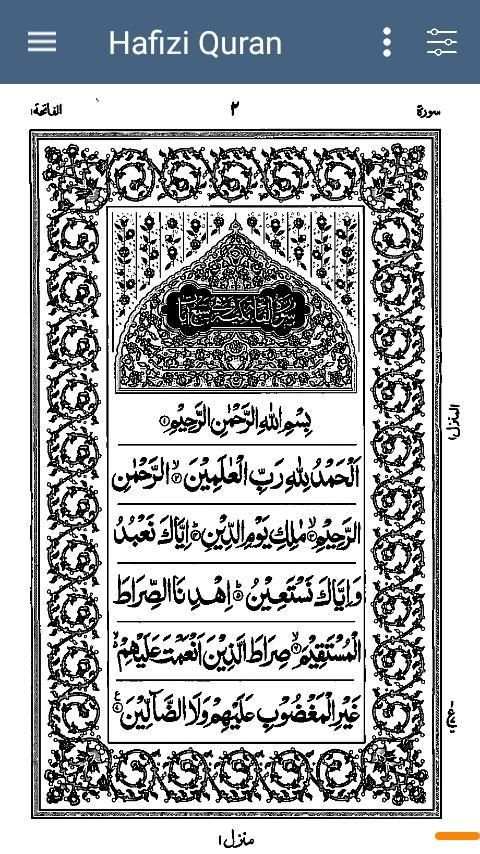 Hafizi Quran
سورة ٢ الفاتحة ١
بِسْمِ اللهِ الرَّحْمٰنِ الرَّحِيْمِ ۝١
اَلْحَمْدُ لِلّٰهِ رَبِّ الْعٰلَمِيْنَ ۝٢ۙ الرَّحْمٰنِ
الرَّحِيْمِ ۝٣ۙ مٰلِكِ يَوْمِ الدِّيْنِ ۝٤ؕ اِيَّاكَ نَعْبُدُ
وَاِيَّاكَ نَسْتَعِيْنُ ۝٥ؕ اِهْدِنَا الصِّرَاطَ
الْمُسْتَقِيْمَ ۝٦ۙ صِرَاطَ الَّذِيْنَ اَنْعَمْتَ عَلَيْهِمْ
غَيْرِ الْمَغْضُوْبِ عَلَيْهِمْ وَلَا الضَّآلِّيْنَ
المنزل ١
منزل ١